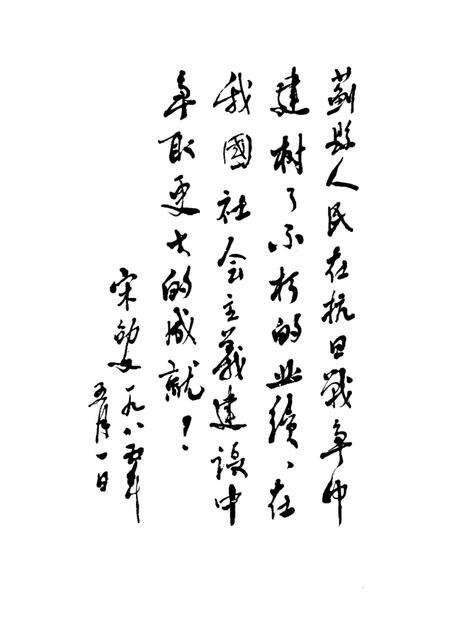 薊縣人民在抗日戰争中
建樹了不朽的业績、在
我國社会主義建設中
争取更大的成就!
宋劭文 一九八五年
五月一日